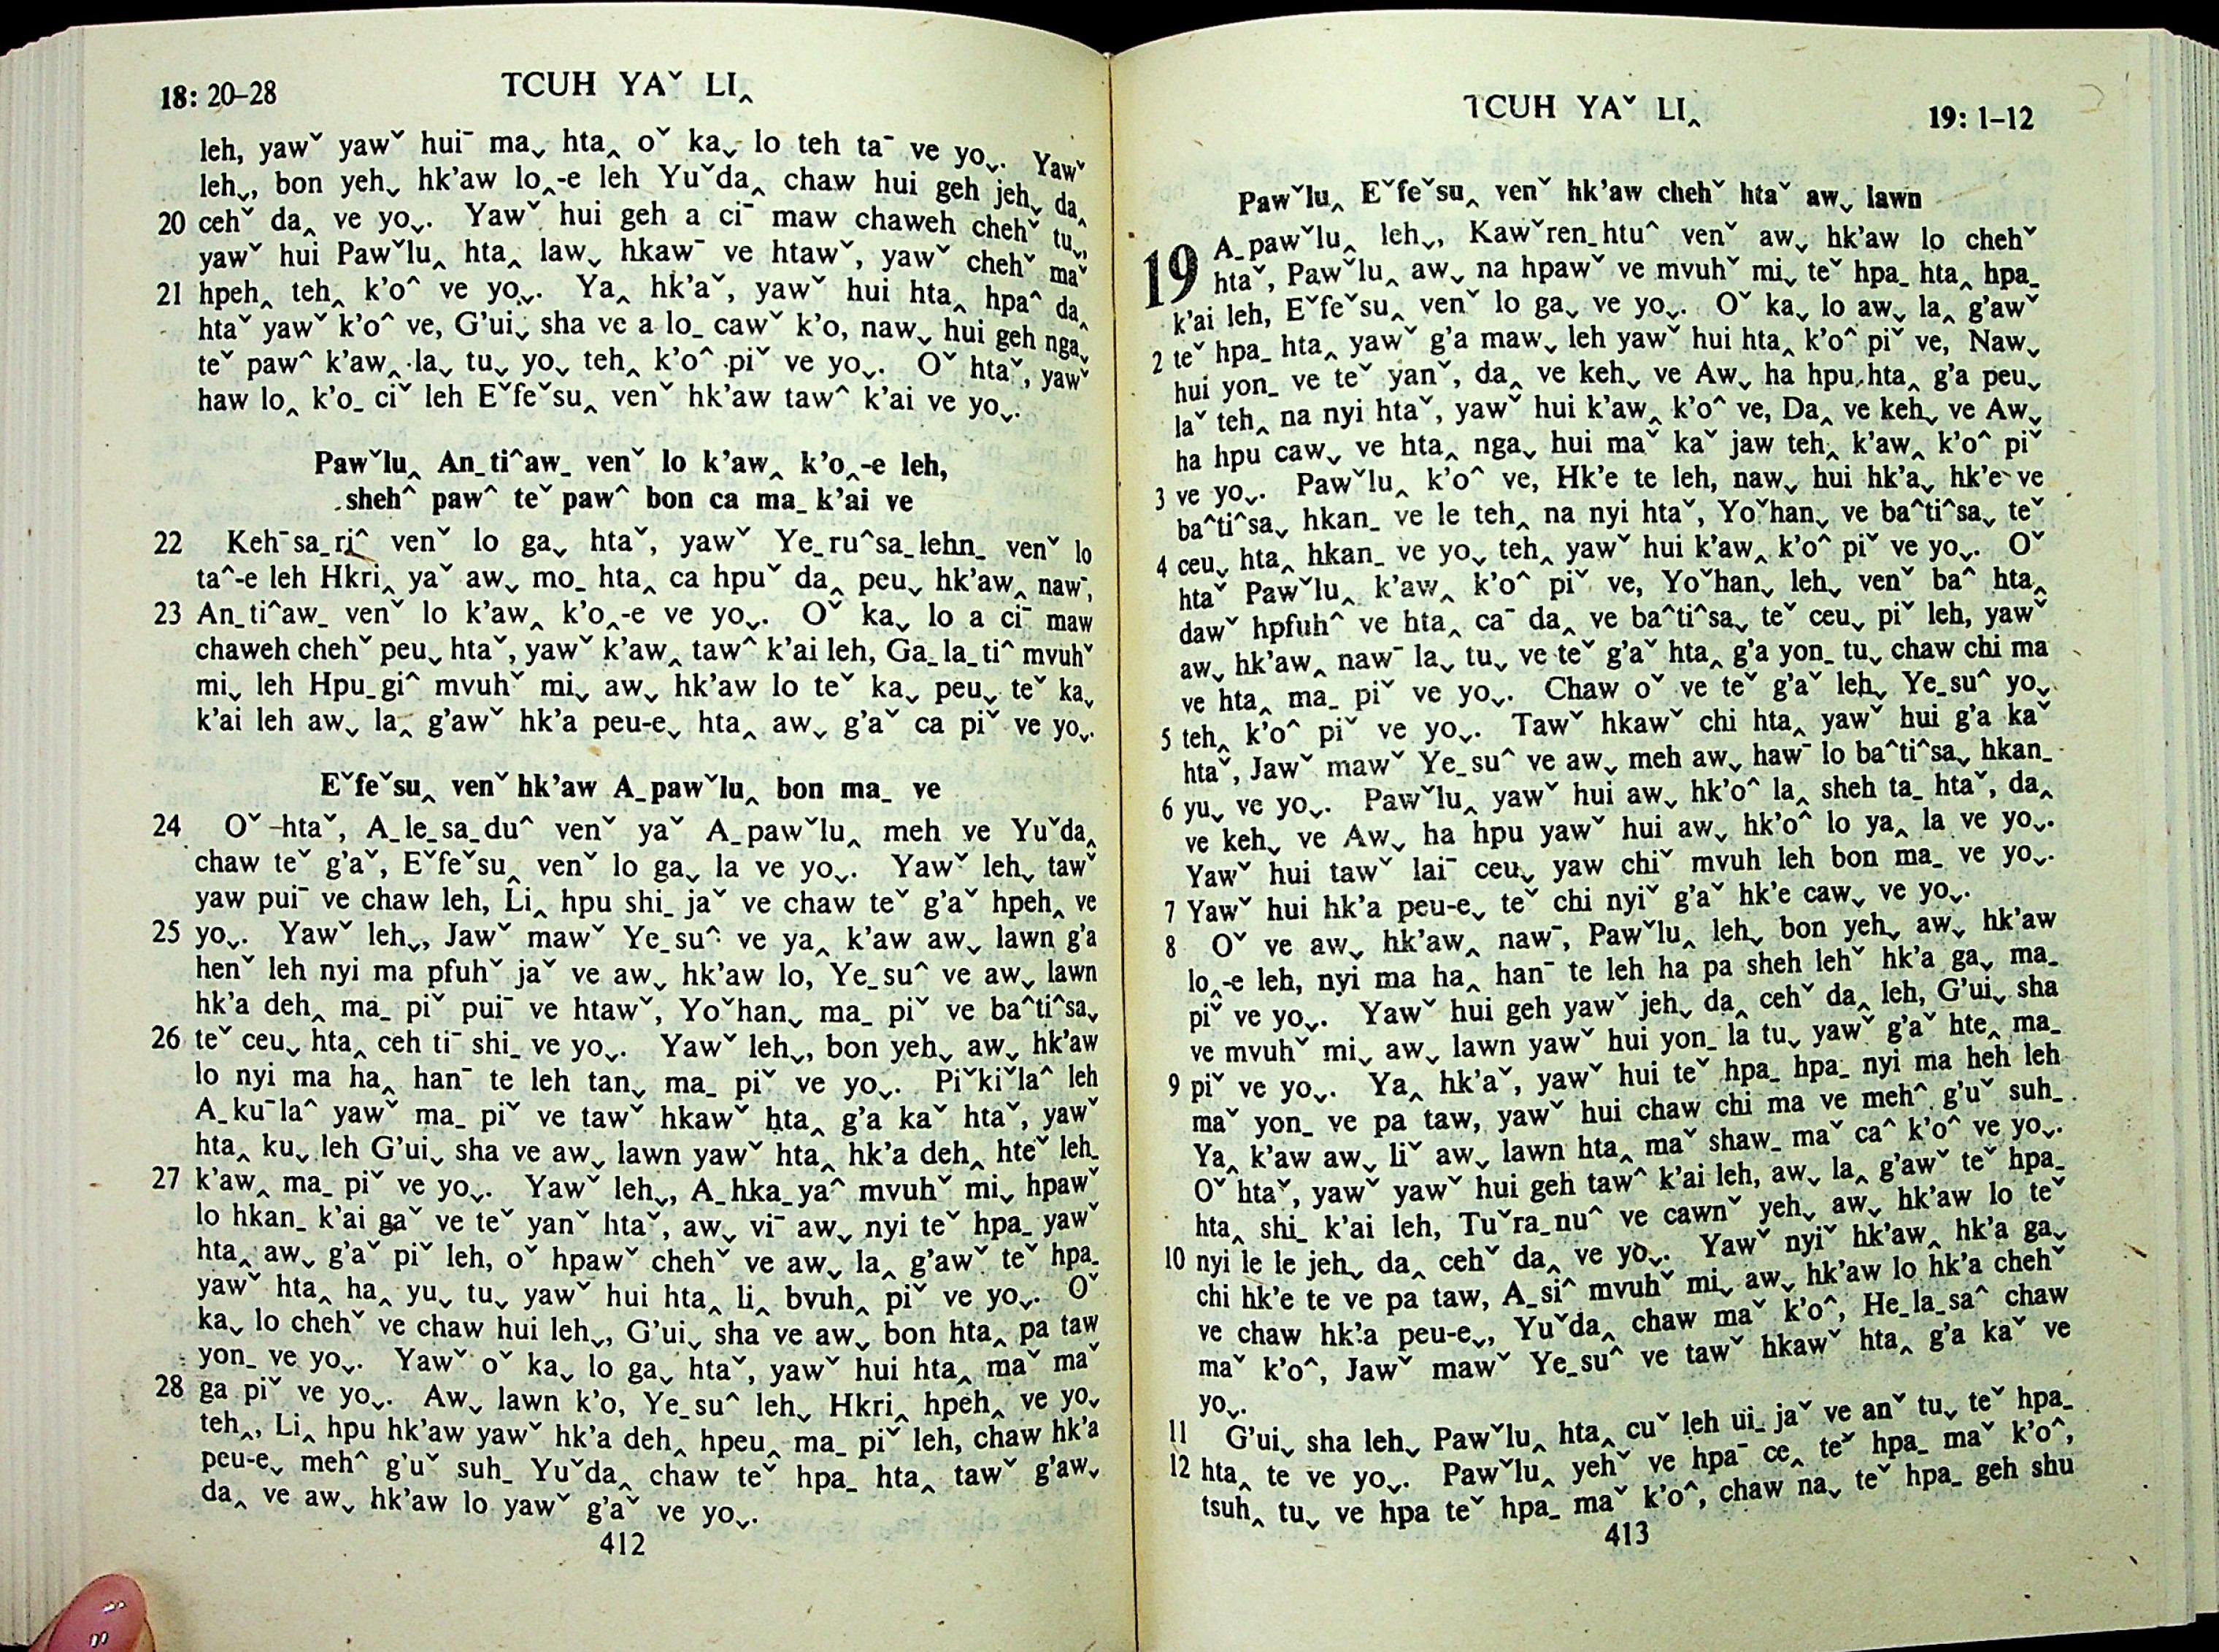 18: 20–28
TCUH YAˇ LI‸
leh, yawˇ yawˇ huiˉ maˬ hta‸ oˇ kaˬ lo teh taˉ ve yoˬ. Yawˇ
lehˬ, bon yehˬ hk'aw lo‸-e leh Yuˇda‸ chaw hui geh jehˬ da‸
20 cehˇ da‸ ve yoˬ. Yawˇ hui geh a ciˉ maw chaweh chehˇ tuˬ,
yawˇ hui Pawˇlu‸ hta‸ lawˬ hkawˉ ve htawˇ, yawˇ chehˇ maˇ
21 hpeh‸ teh‸ k'o^ ve yoˬ. Ya‸ hk'aˇ, yawˇ hui hta‸ hpa^ da‸
htaˇ yawˇ k'o^ ve, G'uiˬ sha ve a lo_ cawˇ k'o, nawˬ hui geh ngaˬ
teˇ paw^ k'aw‸ laˬ tuˬ yoˬ teh‸ k'o^ piˇ ve yoˬ. Oˇ htaˇ, yawˇ
haw lo‸ k'o_ ciˇ leh Eˇfeˇsu‸ venˇ hk'aw taw^ k'ai ve yoˬ.
Pawˇlu‸ An_ti^aw_ venˇ lo k'aw‸ k'o‸-e leh,
sheh^ paw^ teˇ paw^ bon ca ma_ k'ai ve
22 Kehˉsa_ri^ venˇ lo gaˬ htaˇ, yawˇ Ye_ru^sa_lehn_ venˇ lo
ta^-e leh Hkri‸ yaˇ awˬ mo_ hta‸ ca hpuˇ da‸ peuˬ hk'aw‸ nawˉ,
23 An_ti^aw_ venˇ lo k'aw‸ k'o‸-e ve yoˬ. Oˇ kaˬ lo a ciˉ maw
chaweh chehˇ peuˬ htaˇ, yawˇ k'aw‸ taw^ k'ai leh, Ga_la_ti^ mvuhˇ
miˬ leh Hpu_gi^ mvuhˇ miˬ awˬ hk'aw lo teˇ kaˬ peuˬ teˇ kaˬ
k'ai leh awˬ la‸ g'awˇ hk'a peu-eˬ hta‸ awˬ g'aˇ ca piˇ ve yoˬ.
Eˇfeˇsu‸ venˇ hk'aw A_pawˇlu‸ bon ma_ ve
24 Oˇ htaˇ, A_le_sa_du^ venˇ yaˇ A_pawˇlu‸ meh ve Yuˇda‸
chaw teˇ g'aˇ, Eˇfeˇsu‸ venˇ lo gaˬ la ve yoˬ. Yawˇ lehˬ tawˇ
yaw puiˉ ve chaw leh, Li‸ hpu shi_ jaˇ ve chaw teˇ g'aˇ hpeh‸ ve
25 yoˬ. Yawˇ lehˬ, Jawˇ mawˇ Ye_su^ ve ya‸ k'aw awˬ lawn g'a
henˇ leh nyi ma pfuhˇ jaˇ ve awˬ hk'aw lo, Ye_su^ ve awˬ lawn
hk'a deh‸ ma_ piˇ puiˉ ve htawˇ, Yoˇhanˬ ma_ piˇ ve ba^ti^saˬ
26 teˇ ceuˬ hta‸ ceh tiˉ shi_ ve yoˬ. Yawˇ lehˬ, bon yehˬ awˬ hk'aw
lo nyi ma ha‸ hanˉ te leh tanˬ ma_ piˇ ve yoˬ. Piˇkiˇla^ leh
A_kuˉla^ yawˇ ma_ piˇ ve tawˇ hkawˇ hta‸ g'a kaˇ htaˇ, yawˇ
hta‸ kuˬ leh G'uiˬ sha ve awˬ lawn yawˇ hta‸ hk'a deh‸ hteˇ leh_
27 k'aw‸ ma_ piˇ ve yoˬ. Yawˇ lehˬ, A_hka_ya^ mvuhˇ miˬ hpawˇ
lo hkan_ k'ai gaˇ ve teˇ yanˇ htaˇ, awˬ viˉ awˬ nyi teˇ hpa_ yawˇ
hta‸ awˬ g'aˇ piˇ leh, oˇ hpawˇ chehˇ ve awˬ la‸ g'awˇ teˇ hpa_
yawˇ hta‸ ha‸ yuˬ tuˬ yawˇ hui hta‸ li‸ bvuh‸ piˇ ve yoˬ. Oˇ
kaˬ lo chehˇ ve chaw hui lehˬ, G'uiˬ sha ve awˬ bon hta‸ pa taw
yon_ ve yoˬ. Yawˇ oˇ kaˬ lo gaˬ htaˇ, yawˇ hui hta‸ maˇ maˇ
28 ga piˇ ve yoˬ. Awˬ lawn k'o, Ye_su^ lehˬ Hkri‸ hpeh‸ ve yoˬ
teh‸, Li‸ hpu hk'aw yawˇ hk'a deh‸ hpeu‸ ma_ piˇ leh, chaw hk'a
peu-eˬ meh^ g'uˇ suh_ Yuˇda‸ chaw teˇ hpa_ hta‸ tawˇ g'awˬ
da‸ ve awˬ hk'aw lo yawˇ g'aˇ ve yoˬ.
412
TCUH YAˇ LI‸
19: 1–12
Pawˇlu‸ Eˇfeˇsu‸ venˇ hk'aw chehˇ htaˇ awˬ lawn
19 A_pawˇlu‸ lehˬ, Kawˇren_htu^ venˇ awˬ hk'aw lo chehˇ
htaˇ, Pawˇlu‸ awˬ na hpawˇ ve mvuhˇ miˬ teˇ hpa_ hta‸ hpa_
k'ai leh, Eˇfeˇsu‸ venˇ lo gaˬ ve yoˬ. Oˇ kaˬ lo awˬ la‸ g'awˇ
2 teˇ hpa_ hta‸ yawˇ g'a mawˬ leh yawˇ hui hta‸ k'o^ piˇ ve, Nawˬ
hui yon_ ve teˇ yanˇ, da‸ ve kehˬ ve Awˬ ha hpu hta‸ g'a peuˬ
laˇ teh‸ na nyi htaˇ, yawˇ hui k'aw‸ k'o^ ve, Da‸ ve kehˬ ve Awˬ
ha hpu cawˬ ve hta‸ ngaˬ hui maˇ kaˇ jaw teh‸ k'aw‸ k'o^ piˇ
3 ve yoˬ. Pawˇlu‸ k'o^ ve, Hk'e te leh, nawˬ hui hk'aˬ hk'e ve
ba^ti^saˬ hkan_ ve le teh‸ na nyi htaˇ, Yoˇhanˬ ve ba^ti^saˬ teˇ
4 ceuˬ hta‸ hkan_ ve yoˬ teh‸ yawˇ hui k'aw‸ k'o^ piˇ ve yoˬ. Oˇ
htaˇ Pawˇlu‸ k'aw‸ k'o^ piˇ ve, Yoˇhanˬ lehˬ venˇ ba^ hta‸
dawˇ hpfuh^ ve hta‸ caˉ da‸ ve ba^ti^saˬ teˇ ceuˬ piˇ leh, yawˇ
awˬ hk'aw‸ nawˉ laˬ tuˬ ve teˇ g'aˇ hta‸ g'a yon_ tuˬ chaw chi ma
ve hta‸ ma_ piˇ ve yoˬ. Chaw oˇ ve teˇ g'aˇ lehˬ Ye_su^ yoˬ
5 teh‸ k'o^ piˇ ve yoˬ. Tawˇ hkawˇ chi hta‸ yawˇ hui g'a kaˇ
htaˇ, Jawˇ mawˇ Ye_su^ ve awˬ meh awˬ hawˉ lo ba^ti^saˬ hkan_
6 yuˬ ve yoˬ. Pawˇlu‸ yawˇ hui awˬ hk'o^ la‸ sheh ta_ htaˇ, da‸
ve kehˬ ve Awˬ ha hpu yawˇ hui awˬ hk'o^ lo ya‸ la ve yoˬ.
Yawˇ hui tawˇ laiˉ ceuˬ yaw chiˇ mvuh leh bon ma_ ve yoˬ.
7 Yawˇ hui hk'a peu-eˬ teˇ chi nyiˇ g'aˇ hk'e cawˬ ve yoˬ.
8 Oˇ ve awˬ hk'aw‸ nawˉ, Pawˇlu‸ lehˬ bon yehˬ awˬ hk'aw
lo‸-e leh, nyi ma ha‸ hanˉ te leh ha pa sheh lehˇ hk'a gaˬ ma_
piˇ ve yoˬ. Yawˇ hui geh yawˇ jehˬ da‸ cehˇ da‸ leh, G'uiˬ sha
ve mvuhˇ miˬ awˬ lawn yawˇ hui yon_ la tuˬ yawˇ g'aˇ hte‸ ma_
9 piˇ ve yoˬ. Ya‸ hk'aˇ, yawˇ hui teˇ hpa_ hpa_ nyi ma heh leh
maˇ yon_ ve pa taw, yawˇ hui chaw chi ma ve meh^ g'uˇ suh_
Ya‸ k'aw awˬ liˇ awˬ lawn hta‸ maˇ shaw_ maˇ ca^ k'o^ ve yoˬ.
Oˇ htaˇ, yawˇ yawˇ hui geh taw^ k'ai leh, awˬ la‸ g'awˇ teˇ hpa_
hta‸ shi_ k'ai leh, Tuˇra_nu^ ve cawnˇ yehˬ awˬ hk'aw lo teˇ
10 nyi le le jehˬ da‸ cehˇ da‸ ve yoˬ. Yawˇ nyiˇ hk'aw‸ hk'a gaˬ
chi hk'e te ve pa taw, A_si^ mvuhˇ miˬ awˬ hk'aw lo hk'a chehˇ
ve chaw hk'a peu-eˬ, Yuˇda‸ chaw maˇ k'o^, He_la_sa^ chaw
maˇ k'o^, Jawˇ mawˇ Ye_su^ ve tawˇ hkawˇ hta‸ g'a kaˇ ve
yoˬ.
11 G'uiˬ sha lehˬ Pawˇlu‸ hta‸ cuˇ leh ui_ jaˇ ve anˇ tuˬ teˇ hpa_
12 hta‸ te ve yoˬ. Pawˇlu‸ yehˇ ve hpaˉ ce‸ teˇ hpa_ maˇ k'o^,
tsuh‸ tuˬ ve hpa teˇ hpa_ maˇ k'o^, chaw naˬ teˇ hpa_ geh shu
413